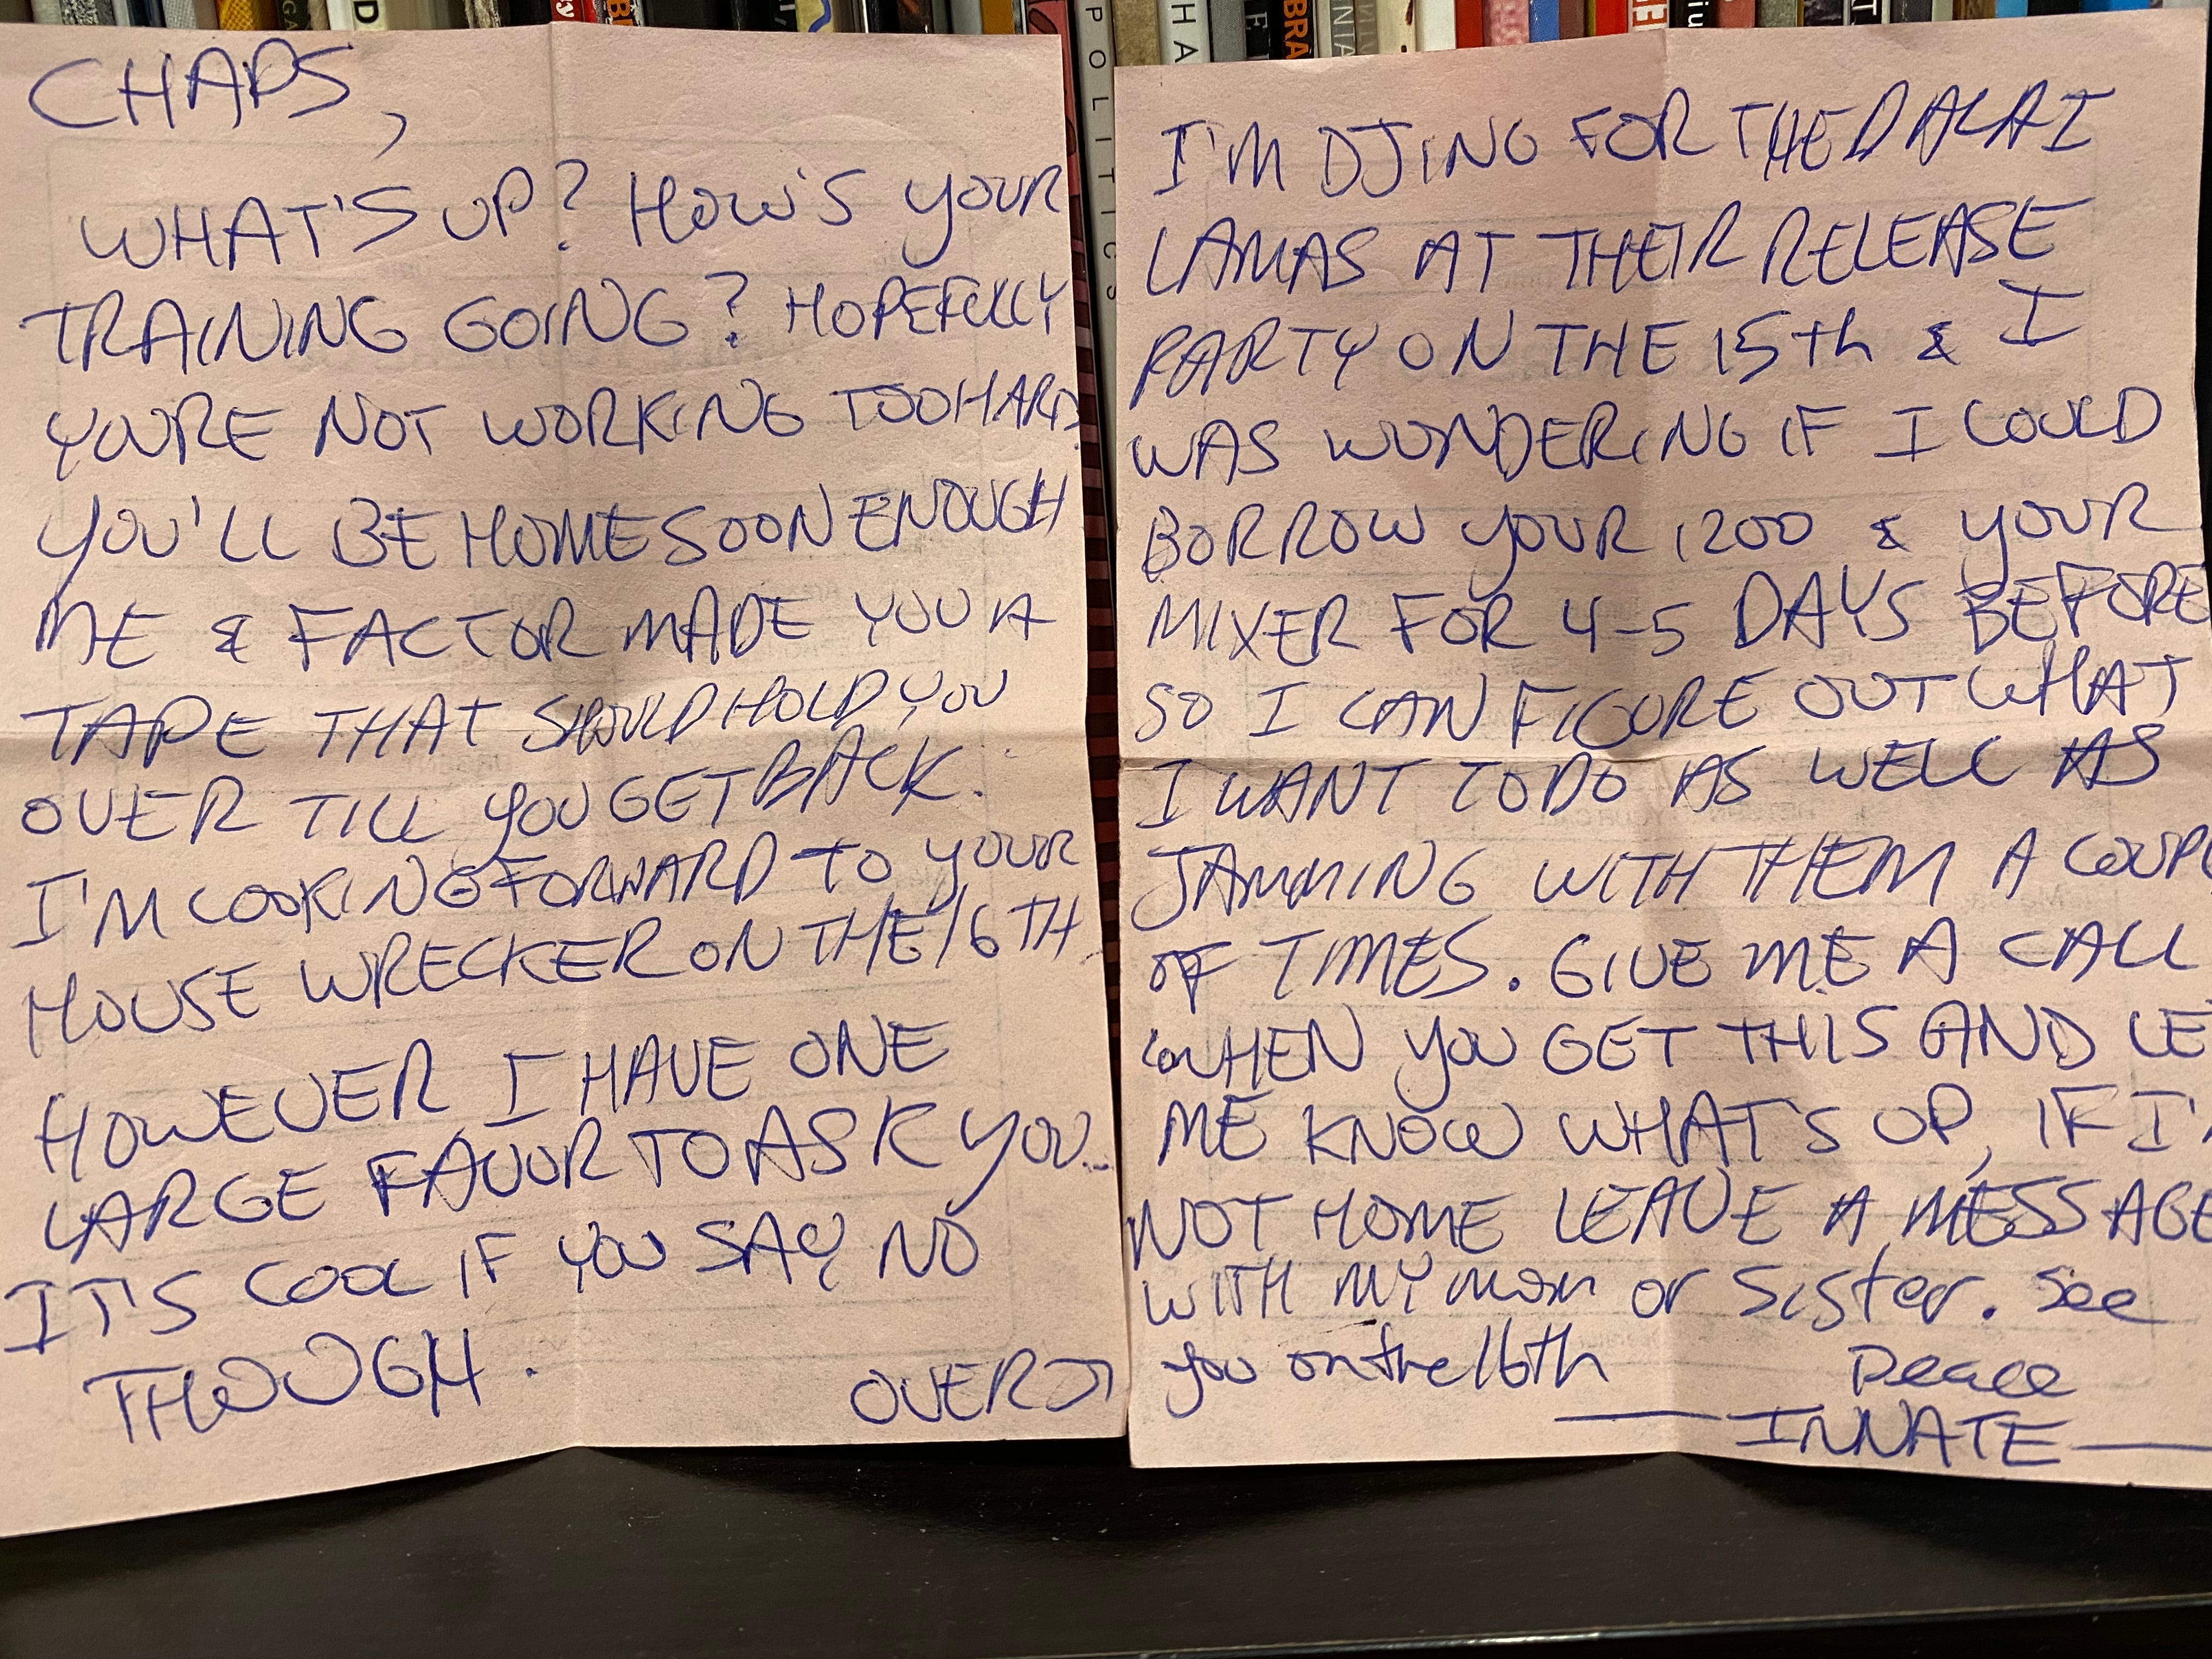 POLITICS
CHAPS,
WHAT'S UP? HOW'S YOUR
TRAINING GOING? HOPEFULLY
YOU'RE NOT WORKING TOO HARD.
YOU'LL BE HOME SOON ENOUGH
ME & FACTOR MADE YOU A
TAPE THAT SHOULD HOLD YOU
OVER TILL YOU GET BACK.
I'M LOOKING FORWARD TO YOUR
HOUSE WRECKER ON THE 16TH.
HOWEVER, I HAVE ONE
LARGE FAVOUR TO ASK YOU...
IT'S COOL IF YOU SAY NO
THOUGH.
OVER
I'M DJING FOR THE DALAI
LAMAS AT THEIR RELEASE
PARTY ON THE 15th & I
WAS WONDERING IF I COULD
BORROW YOUR 1200 & YOUR
MIXER FOR 4-5 DAYS BEFORE
SO I CAN FIGURE OUT WHAT
I WANT TO DO AS WELL AS
JAMMING WITH THEM A COUPL
OF TIMES. GIVE ME A CALL
WHEN YOU GET THIS AND LE
ME KNOW WHAT'S UP, IF I'
NOT HOME LEAVE A MESSAGE
WITH MY mom or Sister. See
you on the 16th
Peace
INNATE